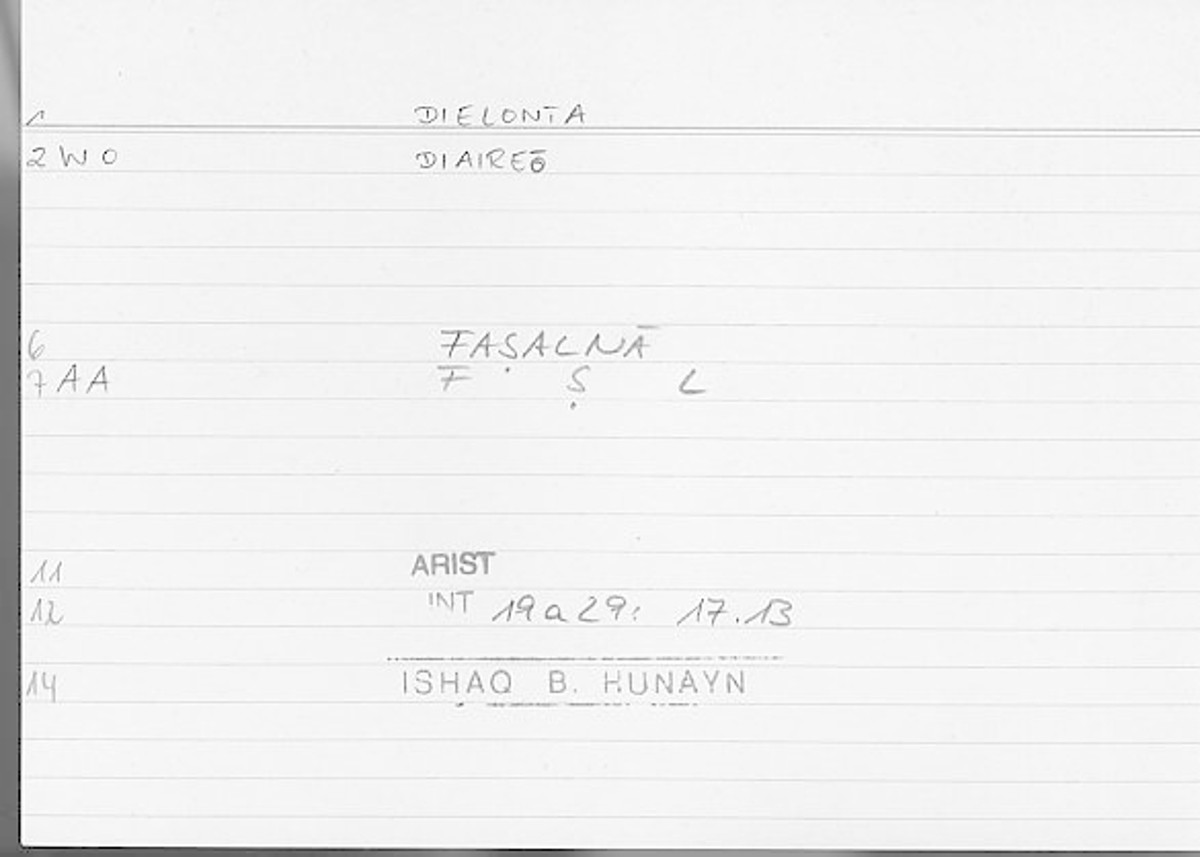 1 DIELONTA
2 W O DIAIREŌ
6 FAṢALNĀ
7 A A F Ṣ L
11 ARIST
12 INT 19a29: 17.13
14 ISHAQ B. HUNAYN